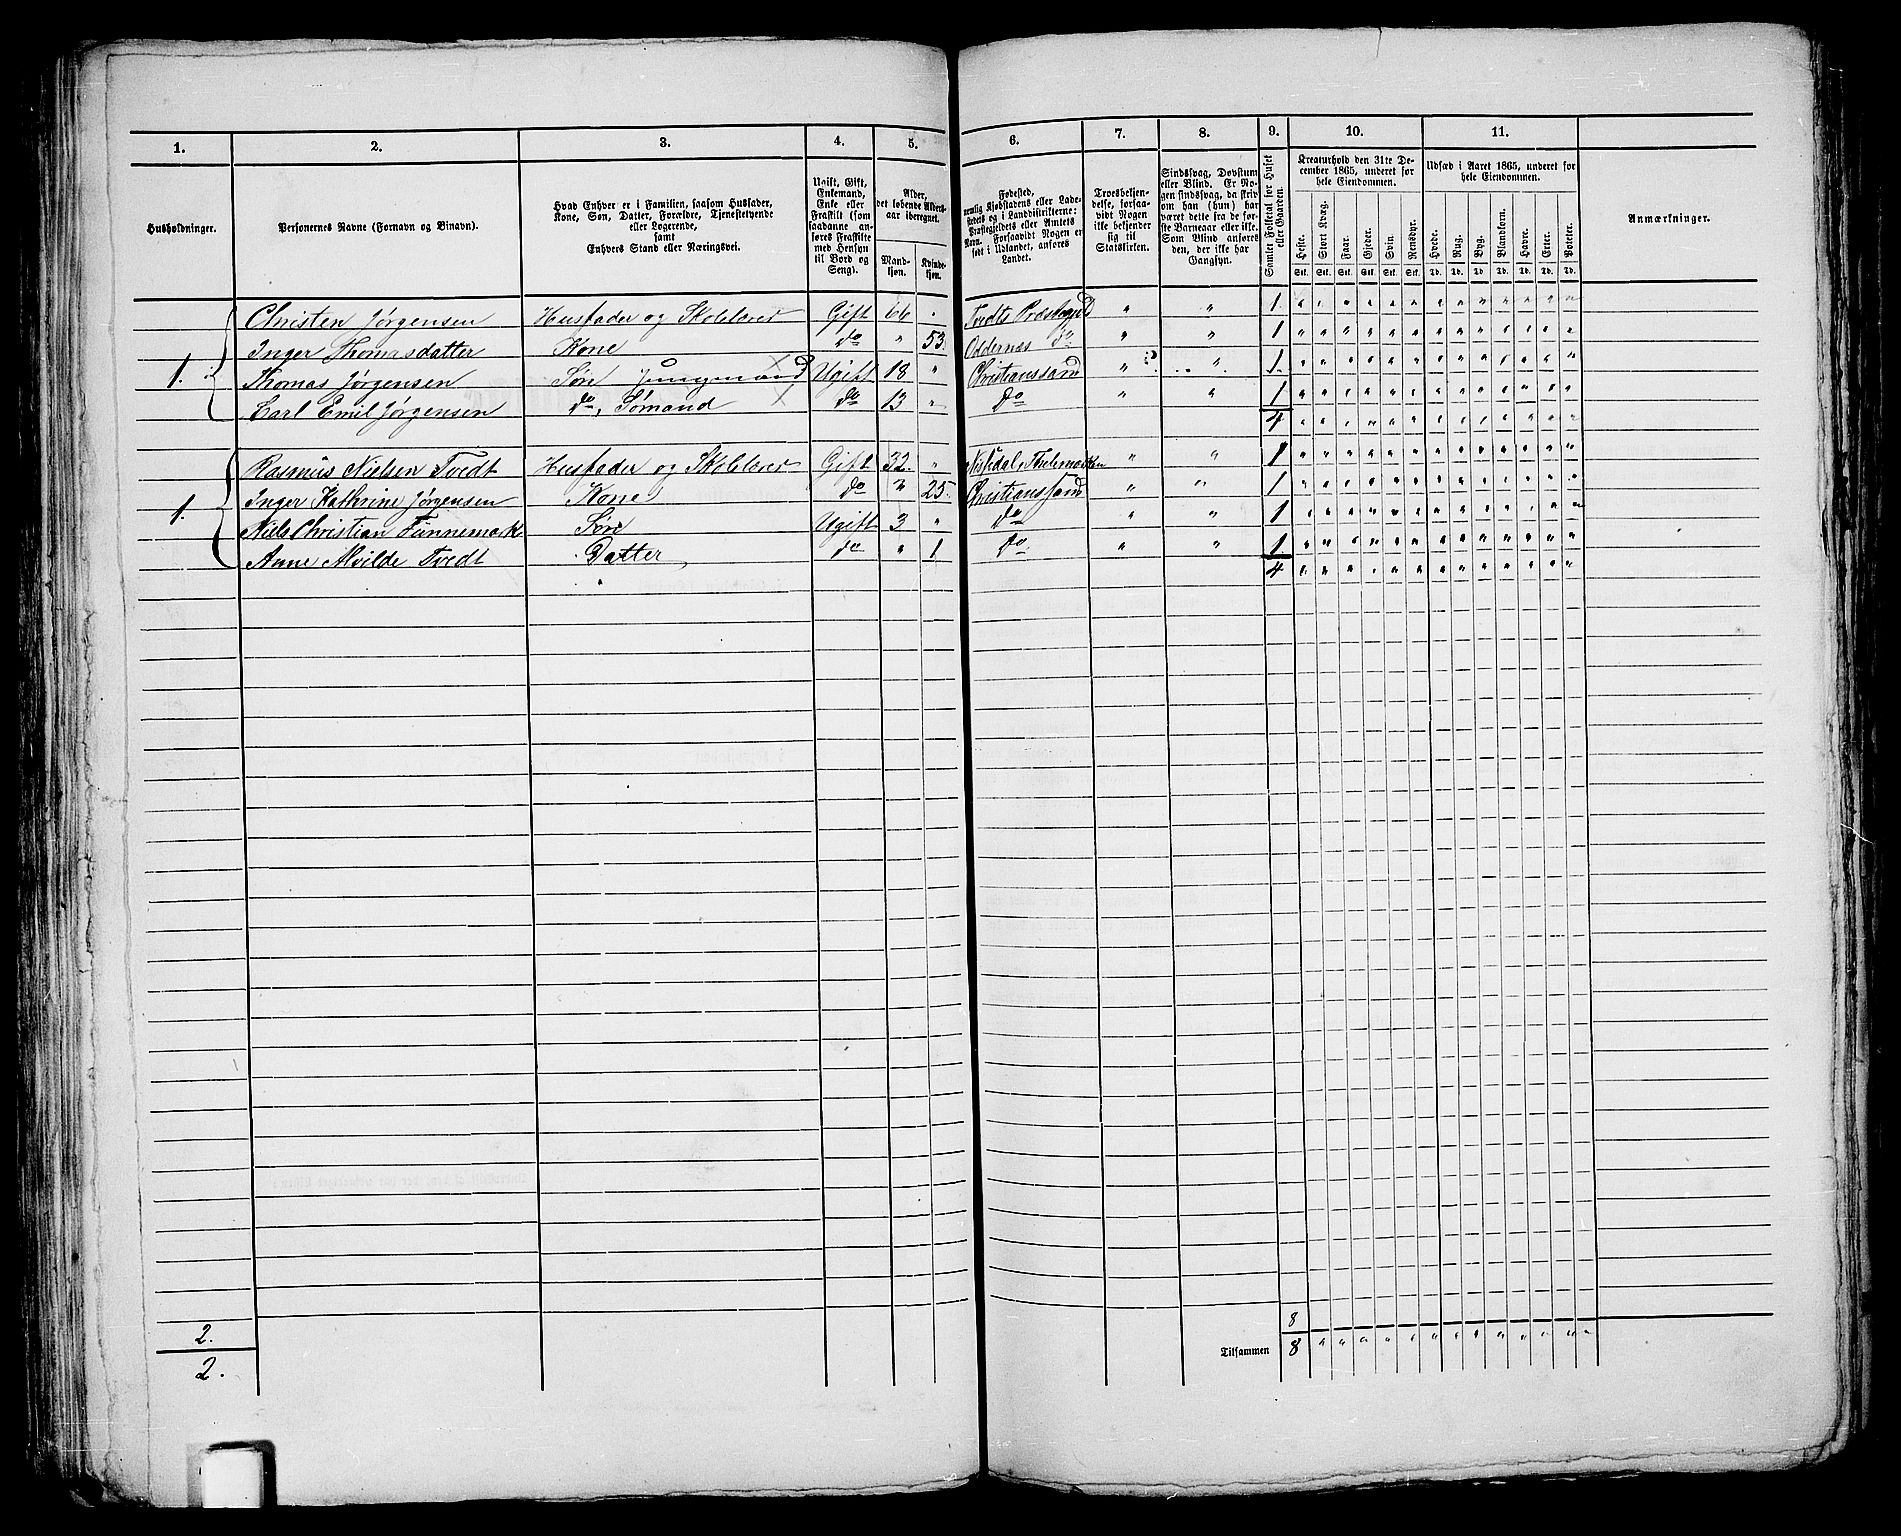 1. 2. 3. 4. 5. 6. 7. 8. 9. 10. 11.
Husholdninger.
Personernes Navne (Fornavn og Binavn).
Hvad Enhver er i Familien, saasom Husfader,
Kone, Søn, Datter, Forældre, Tjenestetyende
eller Logerende,
samt
Enhvers Stand eller Næringsvei.
Ugift, Gift,
Enkemand,
Enke eller
Fraskilt (som
saadanne an-
føres Fraskilte
med Hensyn
til Bord og
Seng).
Alder,
det løbende Alders-
aar iberegnet.
Mand-
kjøn.
Kvinde-
kjøn.
Fødested,
nemlig Kjøbstadens eller Lade-
stedets og i Landdistrikterne:
Præstegjeldets eller Amtets
Navn. Forsaavidt Nogen er
født i Udlandet, anføres
Landet.
Troesbekjen-
delse, forsaa-
vidt Nogen
ikke bekjender
sig til
Statskirken.
Sindssvag, Døvstum
eller Blind. Er No-
gen sindssvag, da skriv
om han (hun) har
været dette fra de før-
ste Barneaar eller ikke.
Som Blind anføres
der, ikke har
Gangsyn.
Samlet Folketal for Huset
eller Gaarden.
Kreaturhold den 31te De-
cember 1865, underet for
hele Eiendommen.
Heste. Stort Kvæg. Faar. Gjeder. Svin. Rensdyr.
Stk. Stk. Stk. Stk. Stk. Stk.
Udsæd i Aaret 1865, underet for
hele Eiendommen.
Hvede. Rug. Byg. Blandkorn. Havre. Erter. Poteter.
Td. Td. Td. Td. Td. Td. Td.
Anmærkninger.
Christen Jørgensen Husfader og Skolelærer Gift 66 " Tvedts Præstegjeld " " 1
Inger Thomasdatter Kone do " 53. Oddernæs do " " 1
1. Thomas Jørgensen Søn Jungmand Ugift 18 " Christianssand " " 1
Carl Emil Jørgensen do, Sømand do 13 " do " " 1
4
Rasmus Nielsen Tvedt Husfader og Skolelærer Gift 32. " Nissedal, Thelemarken " " 1
Inger Kathrine Jørgensen Kone do " 25. Christianssand " " 1
1. Niels Christian Tunnemark Søn Ugift 3 " do " " 1
Anne Alvilde Tvedt Datter do " 1. do. " " 1
4
2. 8
2. Tilsammen 8